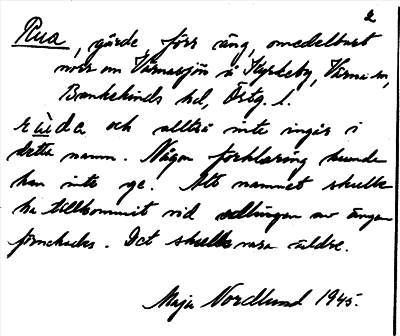 2
Rua, gärde, förr äng, omedelbart
norr om Värnasjön i Kyrkeby, Värna sn,
Bankekinds hd, Östg. l.
och alltså inte ingår i
detta namn. Någon förklaring kunde
han inte ge. Att namnet skulle
ha tillkommit vid odlingen av ängen
förnekades. Det skulle vara äldre.
Maja Nordlund 1945.